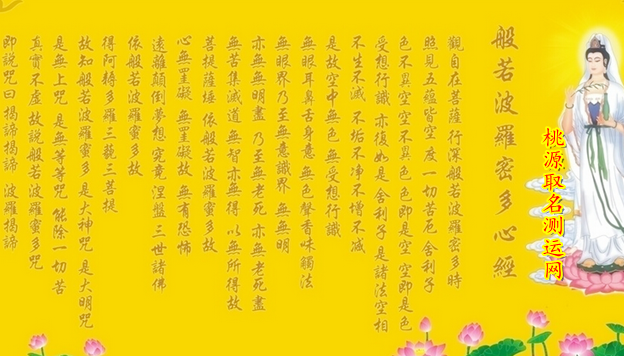 般若波羅密多心經
觀自在菩薩 行深般若波羅密多時
照見五蘊皆空 度一切苦厄 舍利子
色不異空 空不異色 色即是空 空即是色
受想行識 亦復如是 舍利子 是諸法空相
不生不滅 不垢不凈 不增不減
是故空中無色 無受想行識
無眼耳鼻舌身意 無色聲香味觸法
無眼界 乃至無意識界 無無明
亦無無明盡 乃至無老死 亦無老死盡
無苦集滅道 無智亦無得 以無所得故
菩提薩埵 依般若波羅蜜多故
心無罣礙 無罣礙故 無有恐怖
遠離顛倒夢想 究竟涅盤 三世諸佛
依般若波羅蜜多故
得阿耨多羅三藐三菩提
故知般若波羅蜜多 是大神咒 是大明咒
是無上咒 是無等等咒 能除一切苦
真實不虛 故說般若波羅蜜多咒
即說咒曰 揭諦揭諦 波羅揭諦
桃源取名测运网